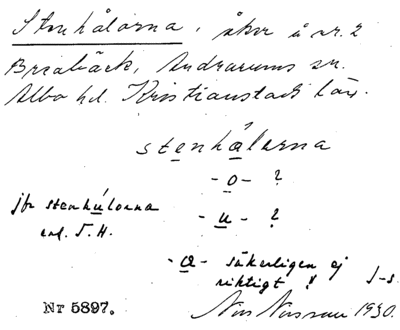 Stenhålorna, åker å nr. 2
Breabäck, Andrarums sn.
Albo hd. Kristianstads län.
stenhålorna
- o - ?
jfr stenhúlorna
- u - ?
enl. J. H.
- a - säkerligen ej
riktigt! J-s.
Nr 5897.
Nils 1930.